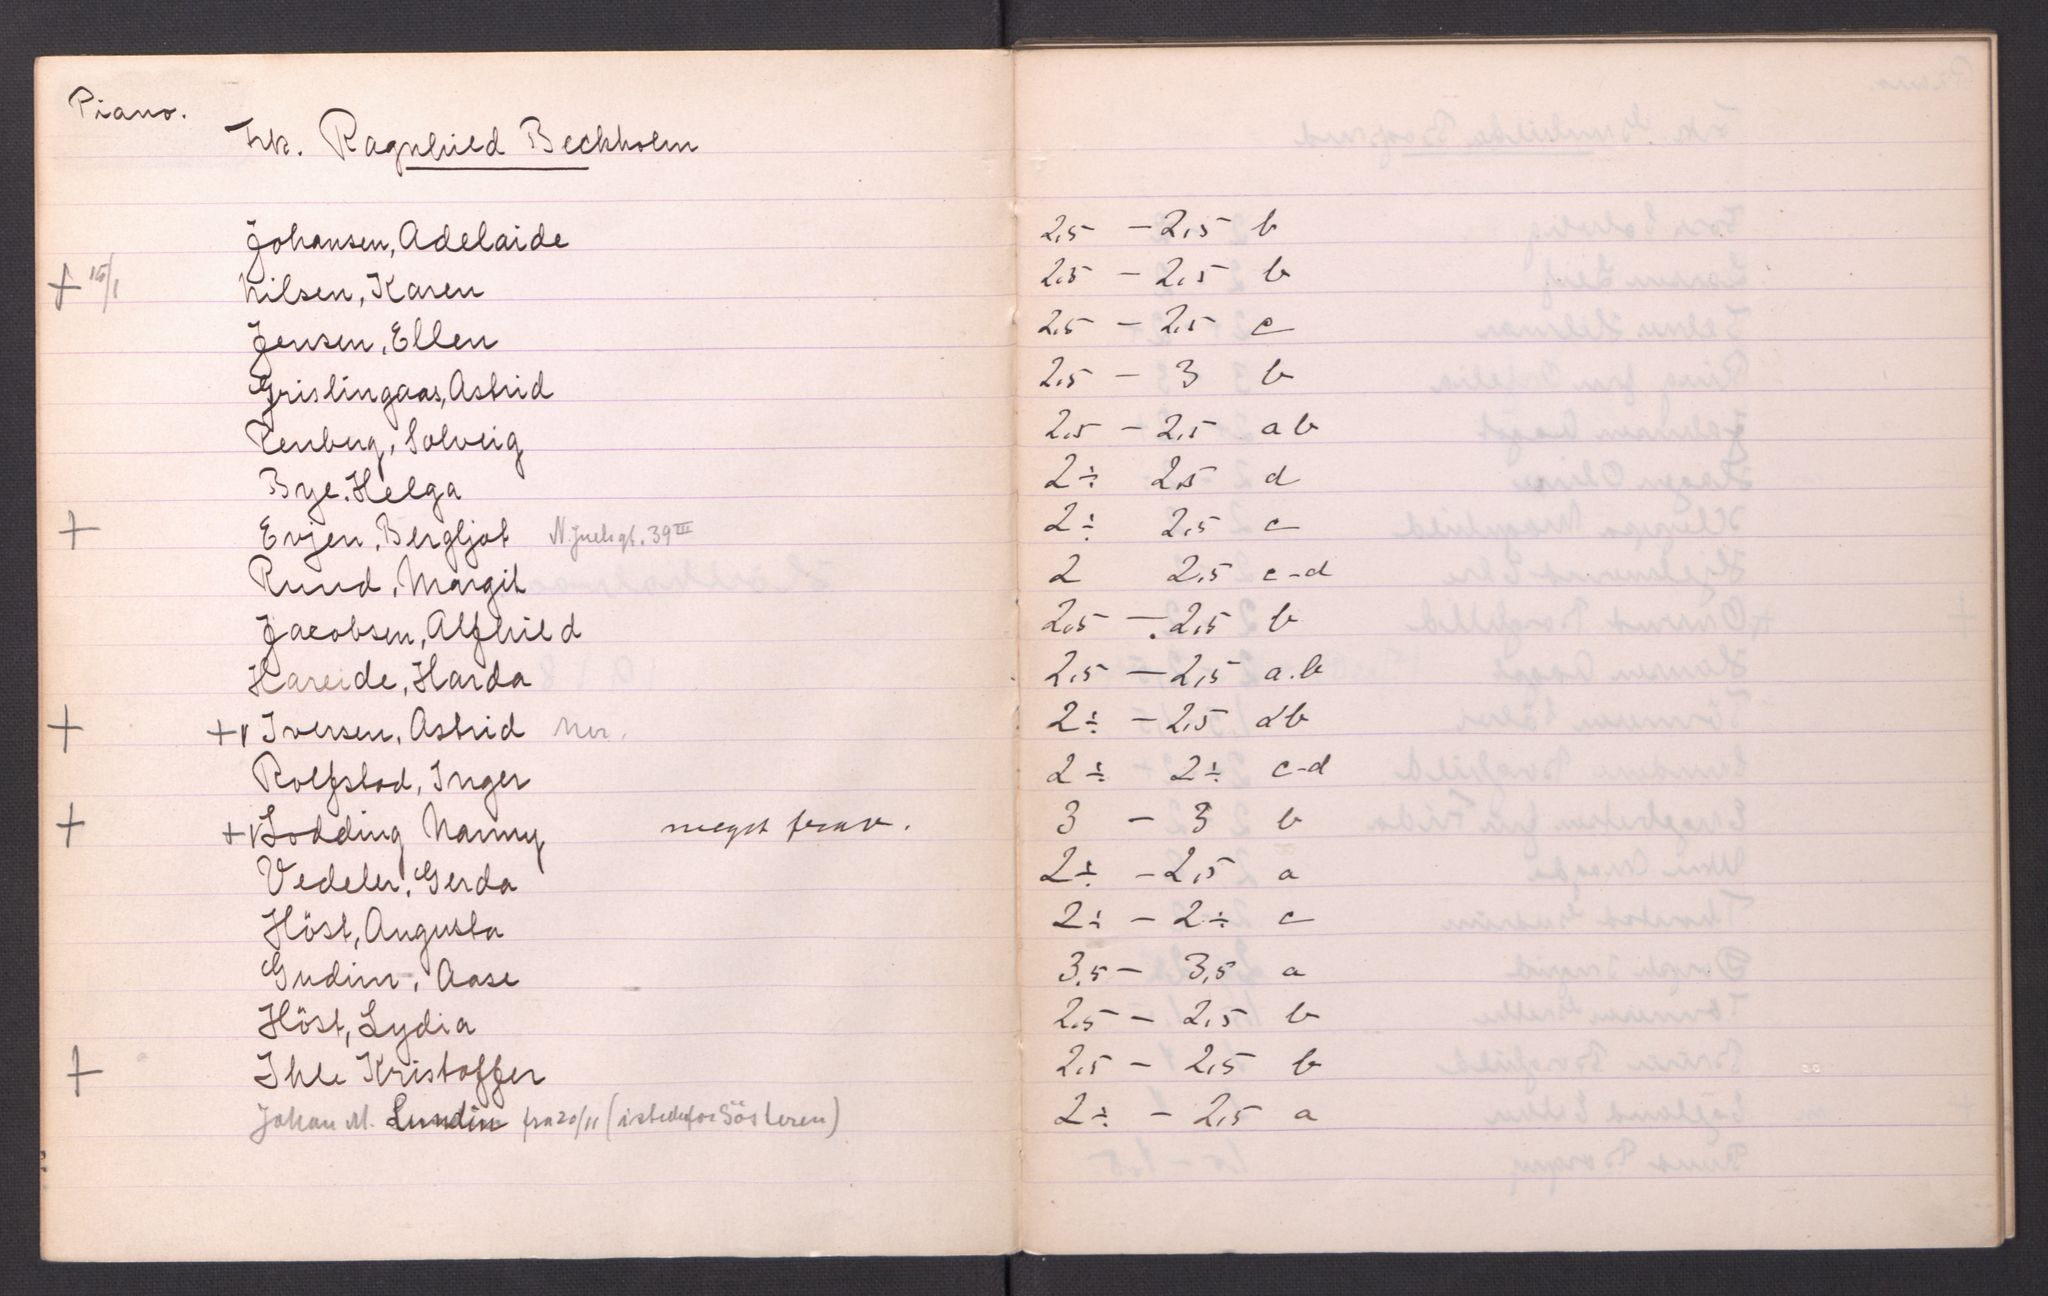 Piano.
Frk. Ragnhild Bechholm
Johansen, Adelaide 2,5 - 2,5 b
+ 15/1 Nilsen, Karen 2,5 - 2,5 b
Jensen, Ellen 2,5 - 2,5 c
Grislingaas, Astrid 2,5 - 3 b
Renberg, Solveig 2,5 - 2,5 ab
Bye. Helga 2÷ 2,5 d
+ Evjen, Bergljot N. Juelsgt. 39 III 2÷ 2,5 c
Ruud, Margit 2 2,5 c-d
Jacobsen, Alfhild 2,5 - 2,5 b
Hareide, Harda 2,5 - 2,5 a.b
+ + Iversen, Astrid 2÷ - 2,5 ab
Rolfstad, Inger 2÷ 2÷ c-d
+ + Lodding Nanny meget frav. 3 - 3 b
Vedeler, Gerda 2÷ - 2,5 a
Höst, Augusta 2÷ - 2÷ c
Gudim, Aase 3,5 - 3,5 a
Höst, Lydia 2,5 - 2,5 b
+ Ihle Kristoffer 2,5 - 2,5 b
Johan M. Lundin fra 20/11 (istedetfor Sösteren) 2÷ - 2,5 a